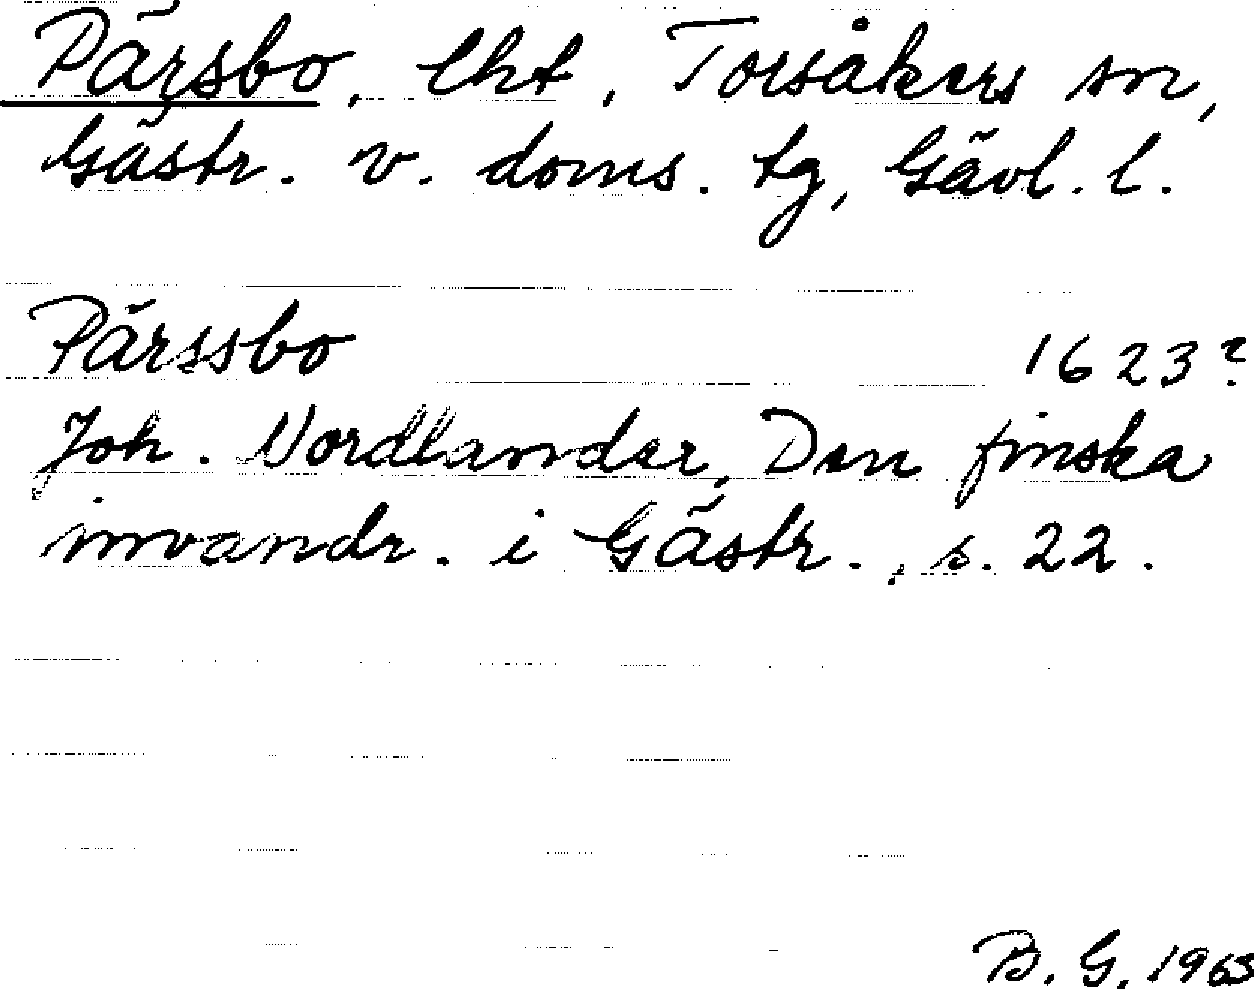 Pärsbo, lht, Torsåkers sn,
Gästr. v. doms. tg, Gävl. l.
Pärssbo 1623?
Joh. Nordlander, Den finska
invandr. i Gästr., s. 22.
B. G. 1963